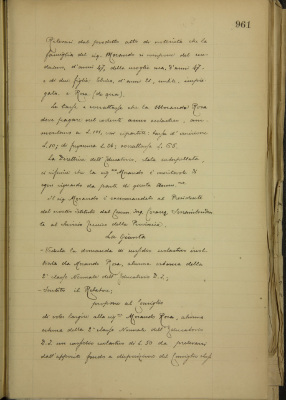 961
Rilevasi dal predetto atto di notorietà che la
famiglia del sig. Morando si compone del me-
desimo, d'anni 47, della moglie sua, d'anni 47.
e di due figlie Clelia, d'anni 21, nubile, impie-
gata, e Rosa (la quale).
Le tasse e sovrattasse che la Morando Rosa
deve pagare nel corrente anno scolastico, am-
montano a L. 111, così ripartite: tassa d'iscrizione
L. 10; di frequenza L. 36; sovrattassa L. 65.
La Direttrice dell'Educatorio, stata interpellata,
ci riferì che la sig.na Morando è meritevole di
ogni riguardo da parte di questa Amm.ne
Il sig. Morando è raccomandato al Presidente
del nostro Istituto dal
te al Servizio Tecnico della Provincia.
La Giunta
- Veduta la domanda di sussidio scolastico inol-
trata da Morando Rosa, alunna esterna della
2ª classe Normale dell'Educatorio D. L.
- Sentito il Relatore,
propone al Consiglio
di voler largire alla sig.na Morando Rosa, alunna
esterna della 2ª classe Normale dell'Educatorio
D. L. un sussidio scolastico di L. 50 da prelevarsi
dall'apposito fondo a disposizione del Consiglio